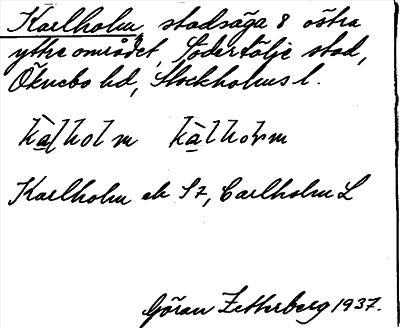 Karlholm, stadsäga 8 östra
yttre området, Södertälje stad,
Öknebo hd, Stockholms l.
kàlholm kàlholm
Karlholm ek S2, Carlholm L
Göran Zetterberg 1937.